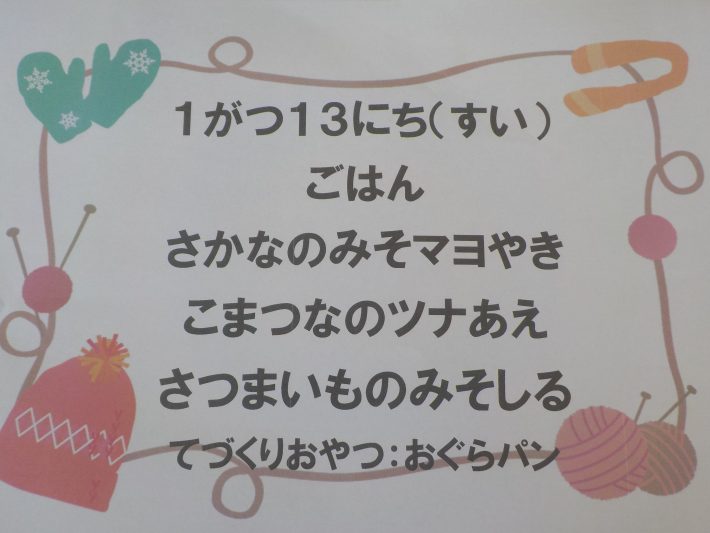 １がつ１３にち（すい）
ごはん
さかなのみそマヨやき
こまつなのツナあえ
さつまいものみそしる
てづくりおやつ：おぐらパン